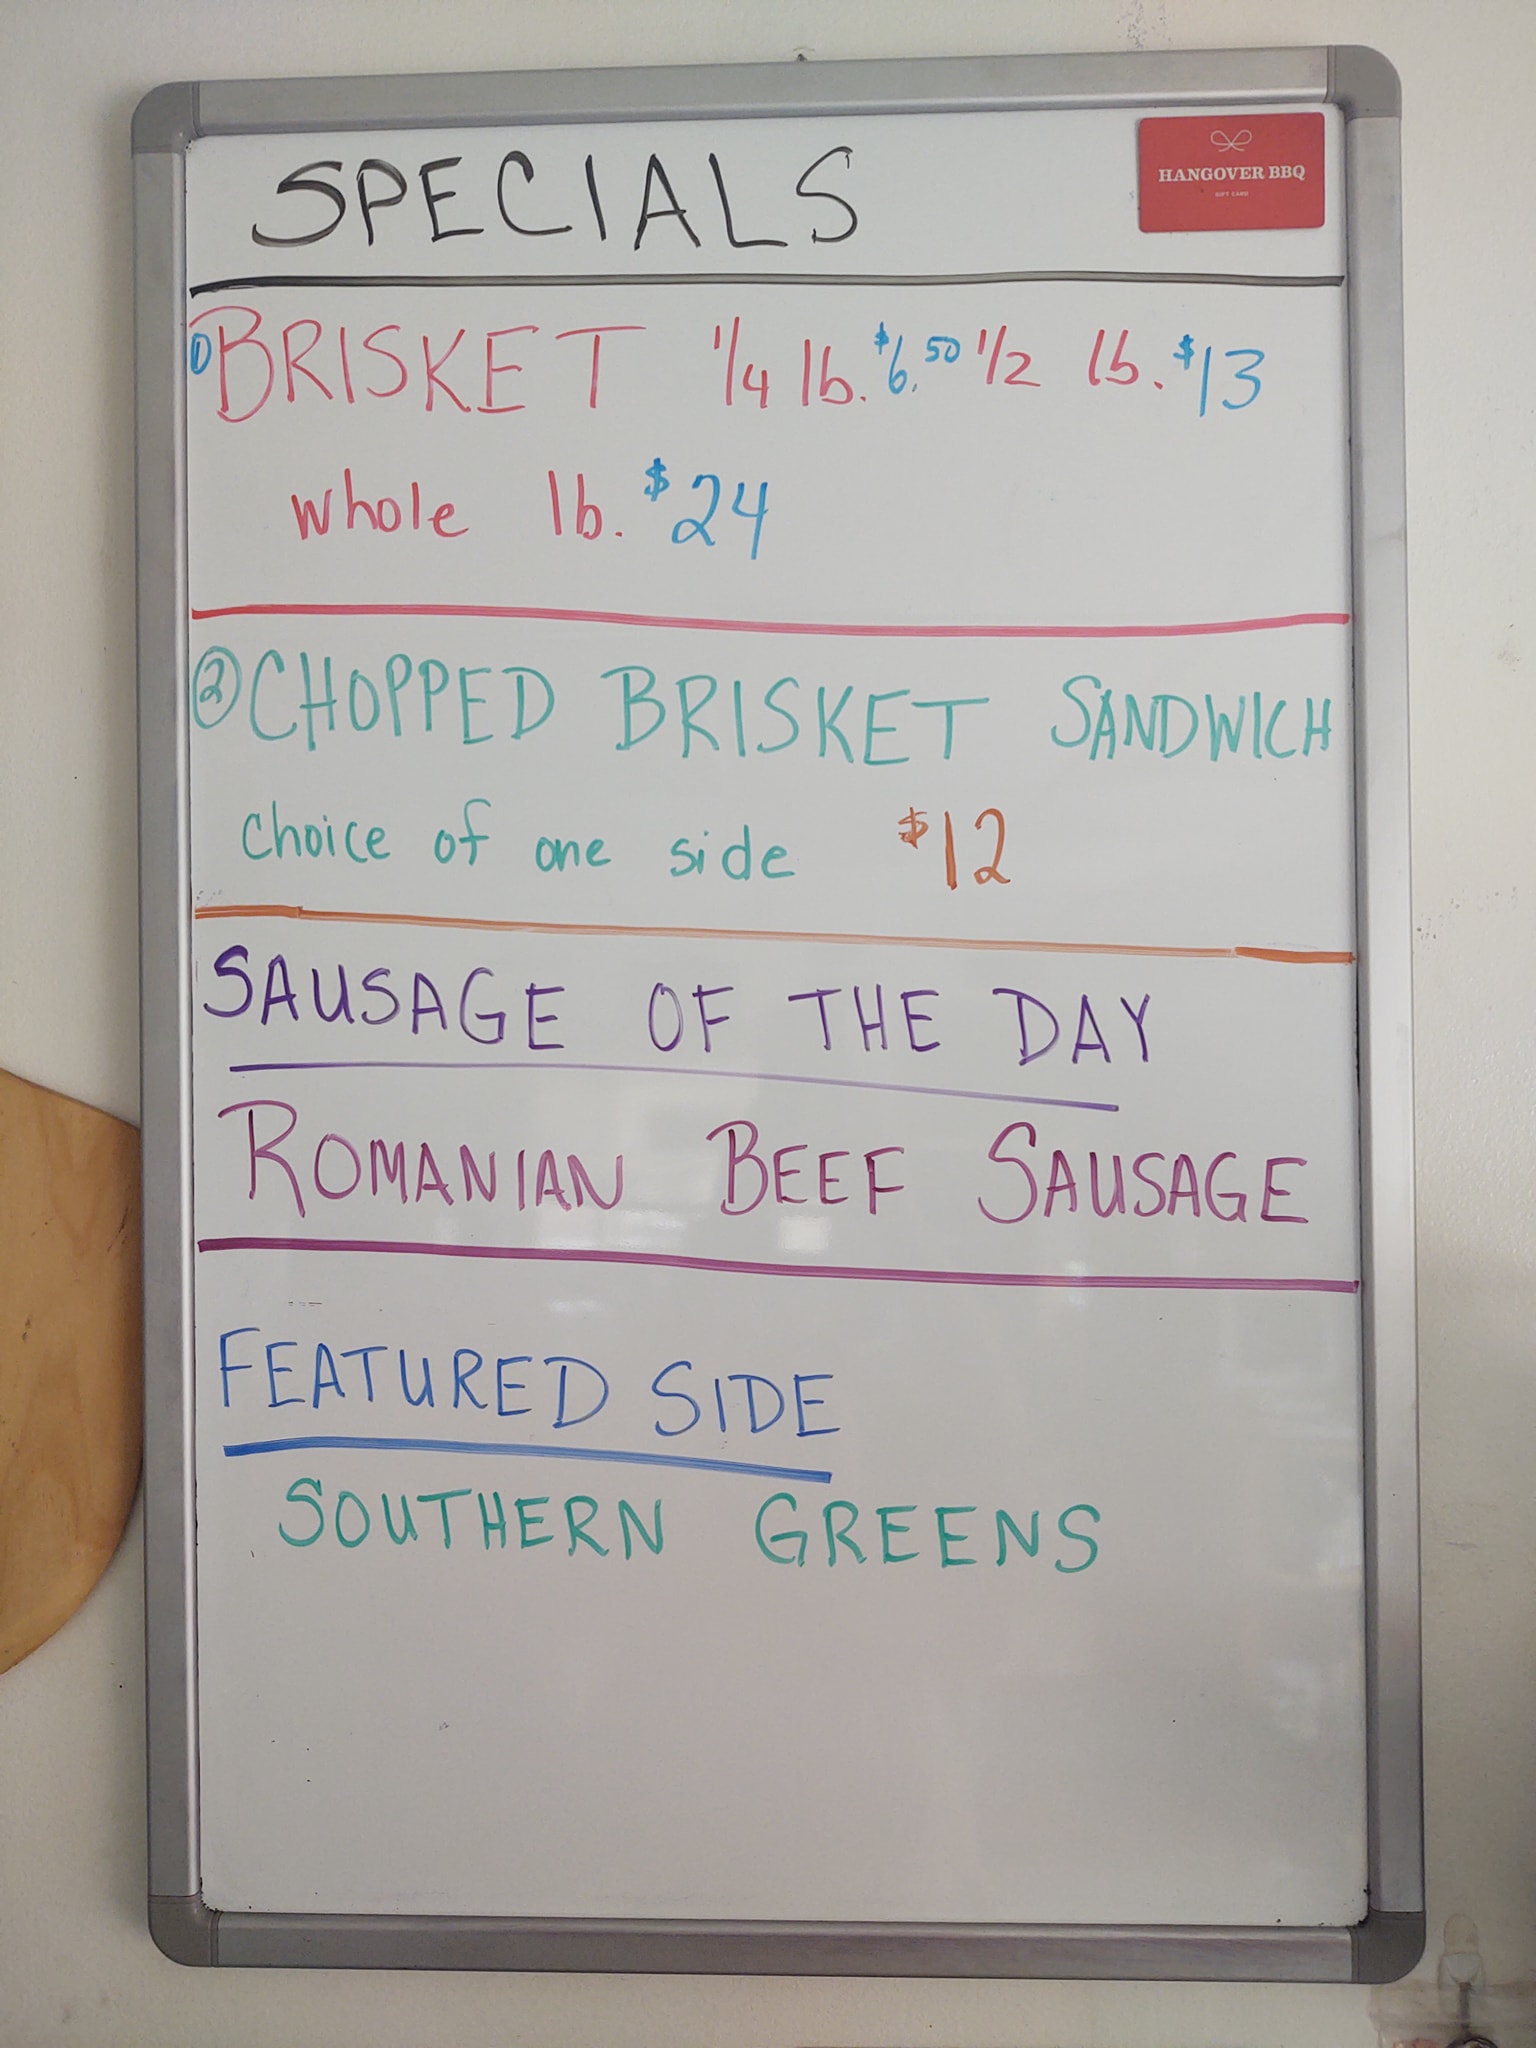 SPECIALS
HANGOVER BBQ
GIFT CARD
① BRISKET 1/4 lb. $6.50 1/2 lb. $13
whole lb. $24
② CHOPPED BRISKET SANDWICH
choice of one side $12
SAUSAGE OF THE DAY
ROMANIAN BEEF SAUSAGE
FEATURED SIDE
SOUTHERN GREENS